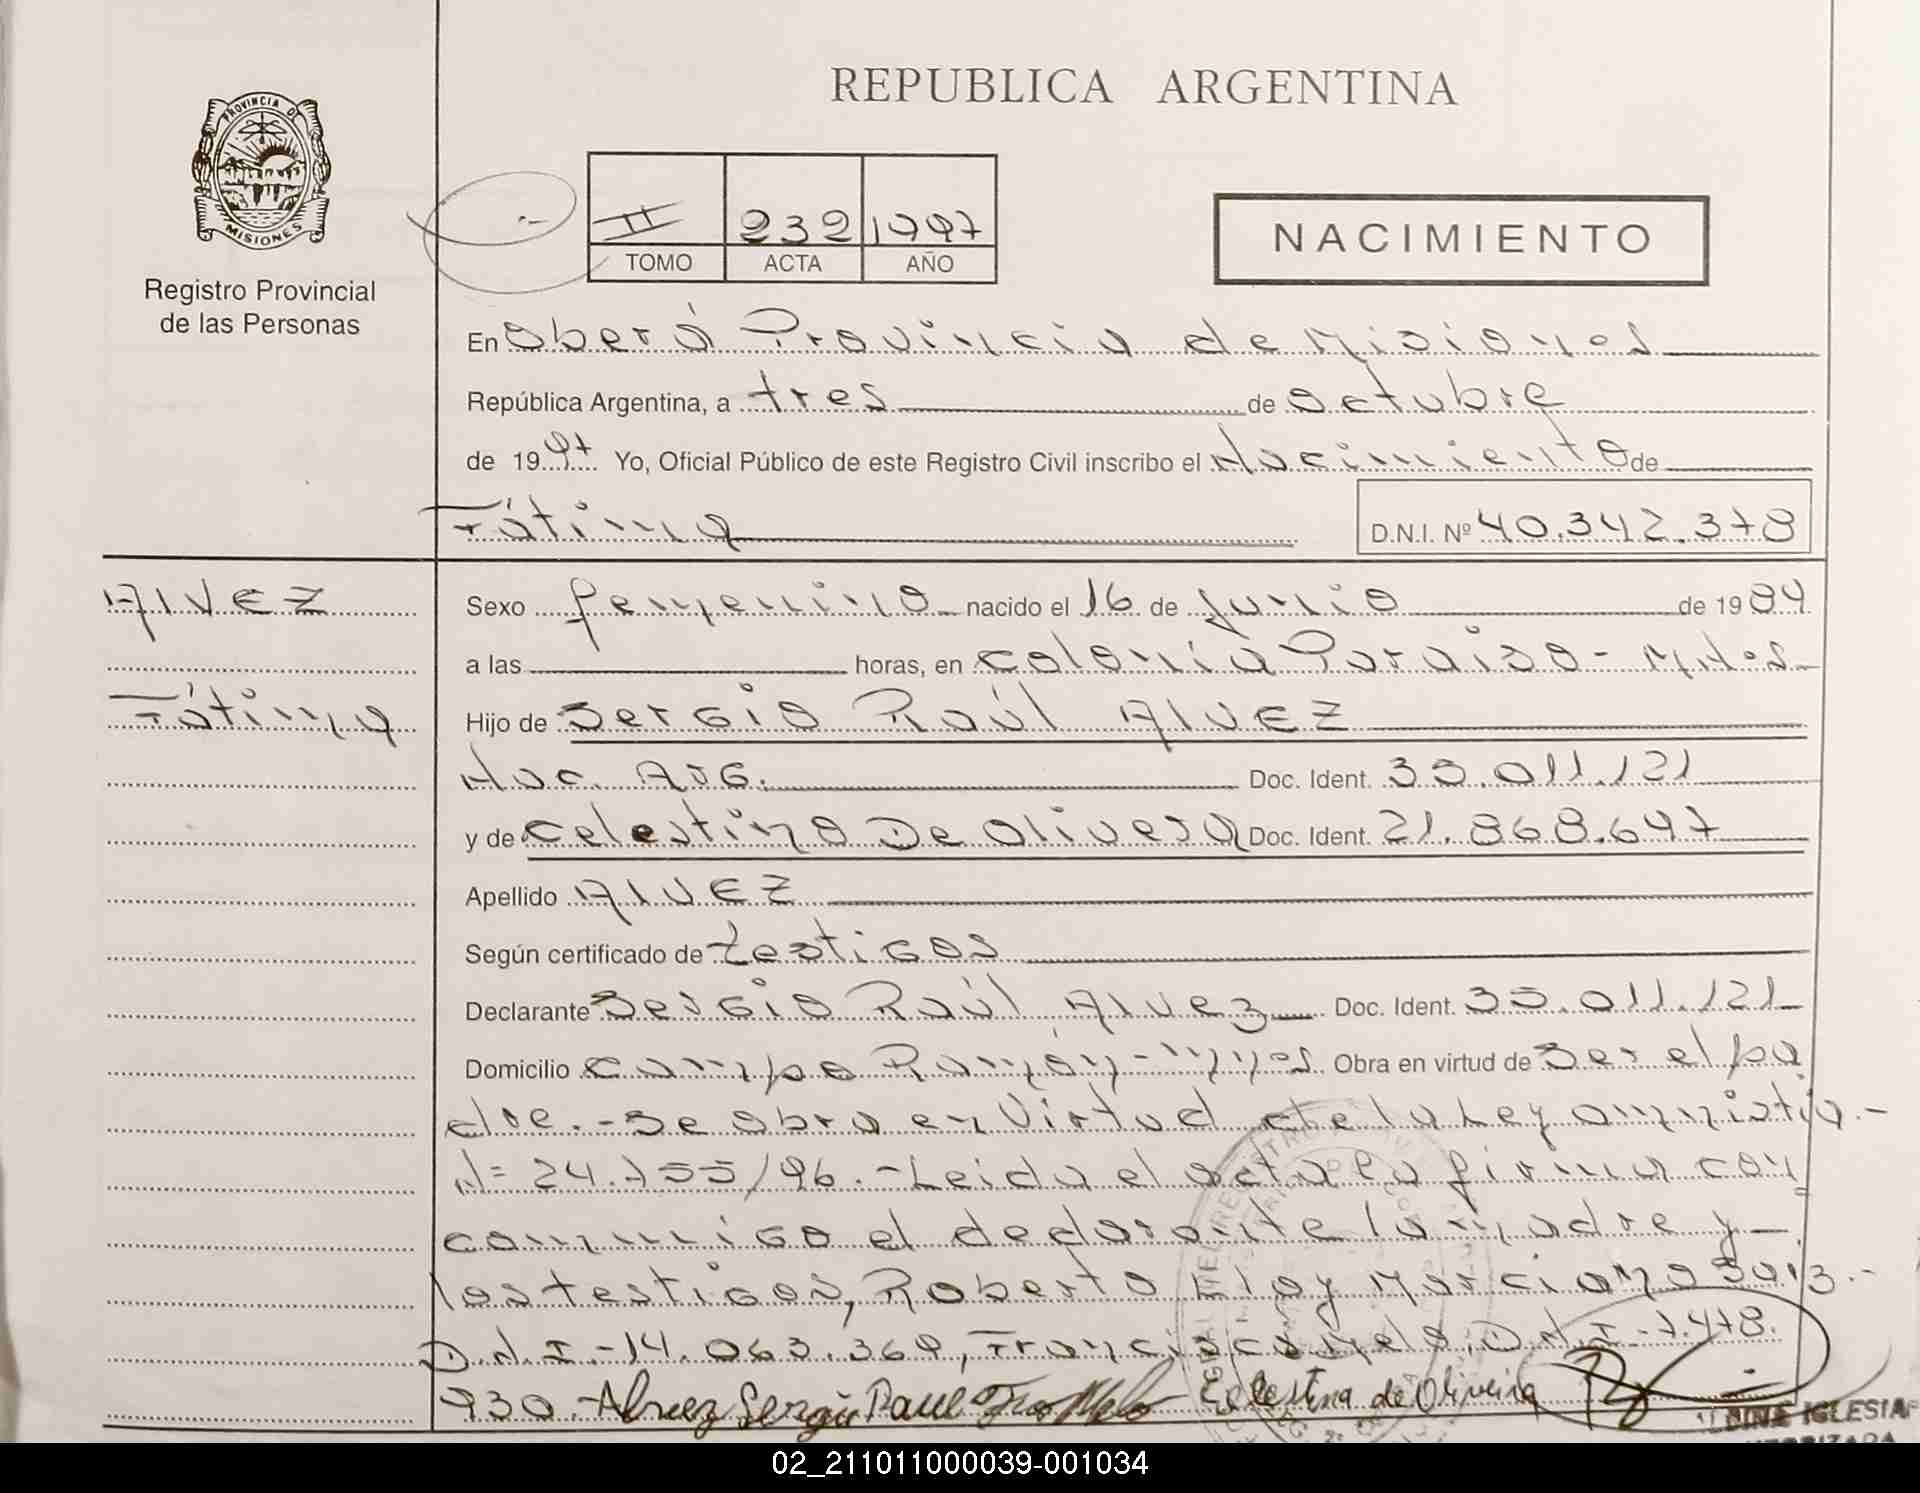 REPUBLICA ARGENTINA
PROVINCIA DE
MISIONES
Registro Provincial
de las Personas
II 232 1997
TOMO ACTA AÑO
NACIMIENTO
En Oberá Provincia de Misiones
República Argentina, a tres de octubre
de 1997 Yo, Oficial Público de este Registro Civil inscribo el Nacimiento de
Fátima
D.N.I. Nº 40.342.378
Alvez
Fátima
Sexo femenino nacido el 16 de Junio de 1984
a las horas, en Colonia Paraiso - Mnes
Hijo de Sergio Raúl Alvez
Nac. Arg. Doc. Ident. 35.011.121
y de Celestina De Olivera Doc. Ident. 21.868.647
Apellido Alvez
Según certificado de testigos
Declarante Sergio Raúl Alvez Doc. Ident. 35.011.121
Domicilio Campo Ramón - Mnes Obra en virtud de ser el pa
dre.- Se obra en Virtud de la Ley amnistia.-
N= 24.755/96.- Leida el acta la firma con
conmigo el declarante la madre y
los testigos, Roberto Eloy Marciano
D.N.I.- 14.063.369, Francisco Melo, D.N.I- 7.478.
930.- Alvez Sergio Raul Celestina de Oliveira
IGLESIA
02_211011000039-001034